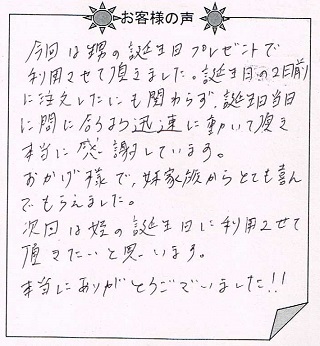 お客様の声
今回は甥の誕生日プレゼントで
利用させて頂きました。誕生日の2日前
に注文したにも関わらず、誕生日当日
に間に合うよう迅速に動いて頂き
本当に感謝しています。
おかげ様で、妹家族からとても喜ん
でもらえました。
次回は姪の誕生日に利用させて
頂きたいと思います。
本当にありがとうございました!!